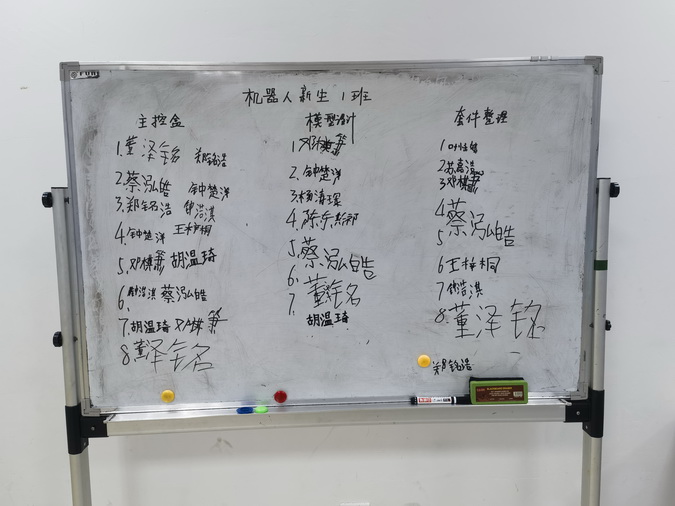 机器人新生1班
主控盒
1.董泽铭 郑铭浩
2.蔡泓皓 钟楚洋
3.郑铭浩 钟浩淇
4.钟楚洋 王梓桐
5.邓棋 胡温琦
6. 浩淇 蔡泓皓
7.胡温琦 邓棋
8.董泽铭
模型设计
1.邓棋
2.钟楚洋
3.杨海琛
4.陈乐
5.蔡泓皓
6.董泽铭
7.
胡温琦
套件整理
1叶
2苏嘉浩
3.邓棋
4.蔡泓皓
5
6王梓桐
7钟浩淇
8.董泽铭
郑铭浩